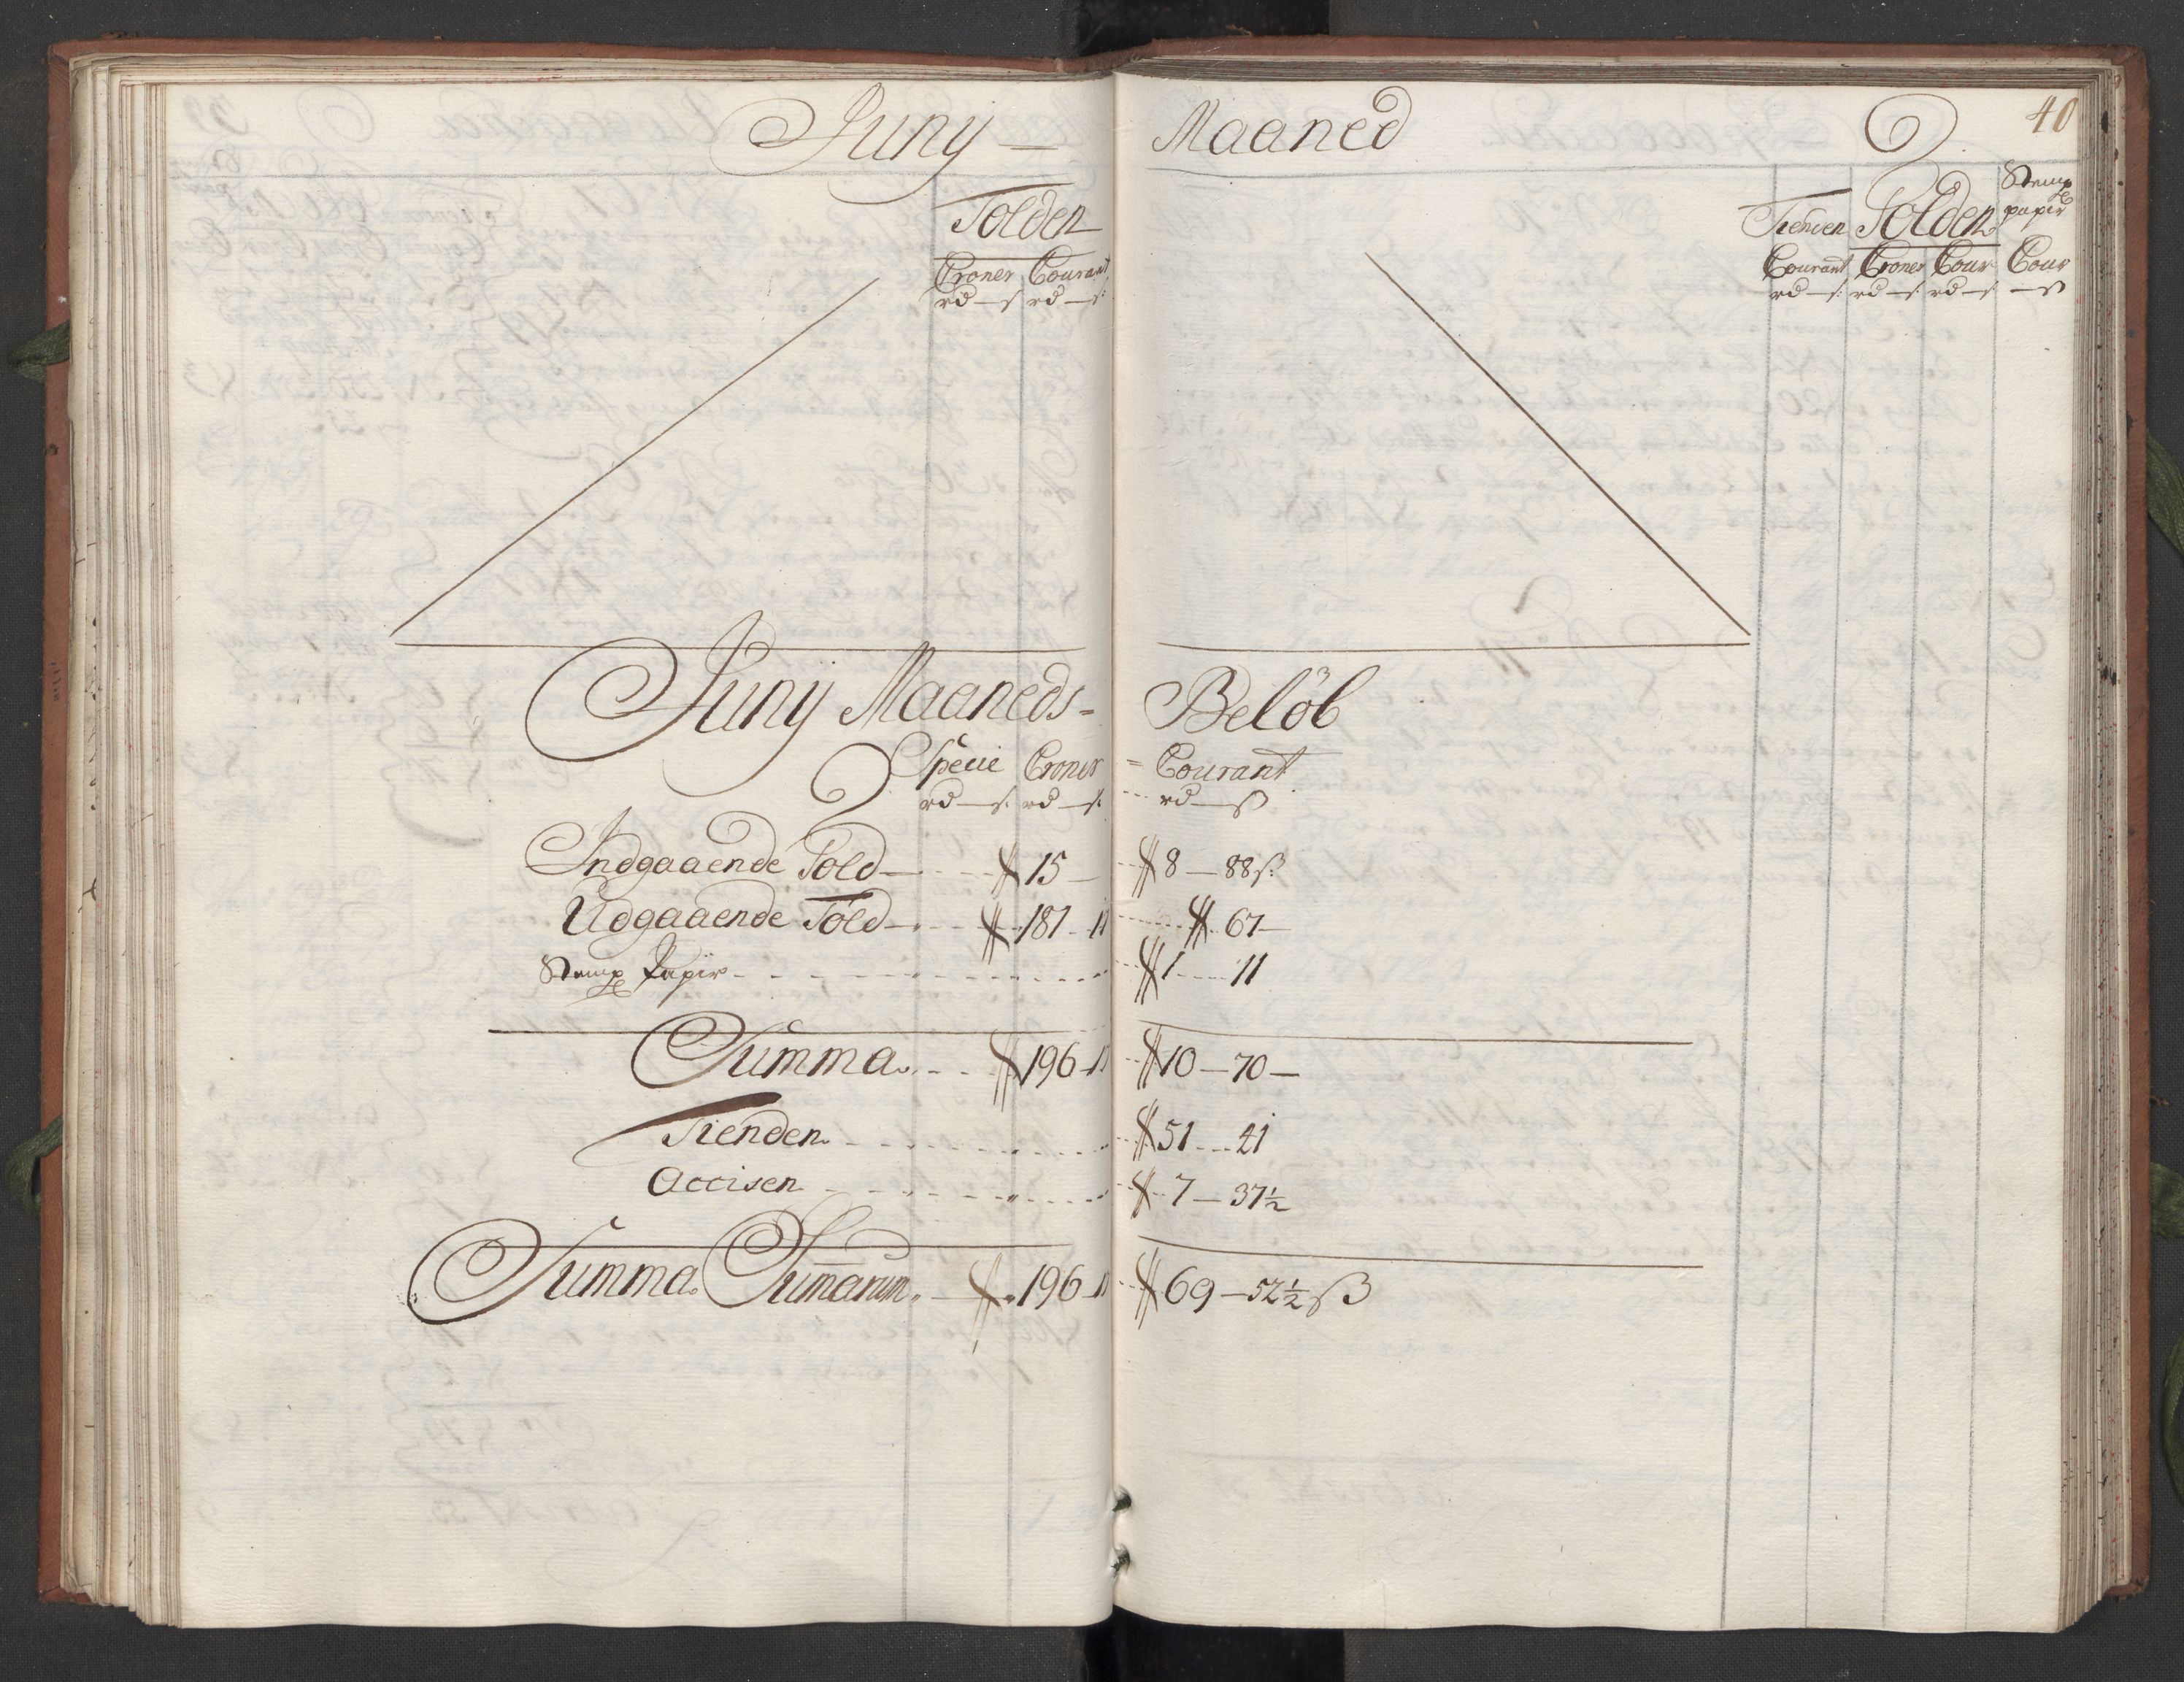 Juny — Maaned 40
Tolden
Croner Courant
rd — s rd — s:
Tienden Tolden Stemp papir
Courant Croner Cour Cour
rd — s: rd — s: rd — s — ß
Juny Maaneds= Beløb
Specie Croner = Courant
rd — s: rd — s: rd — ß
Indgaaende Told — 15 — 8 — 88 ß:
Udgaaende Told — 181 - 11 67 —
Stemp Papir - 1 - 11
Summa. 196 - 11 10 — 70 —
Tienden. 51 - 41
Accisen 7 — 37½
Summa Sumarum. 196 - 11 69 — 52½ ß